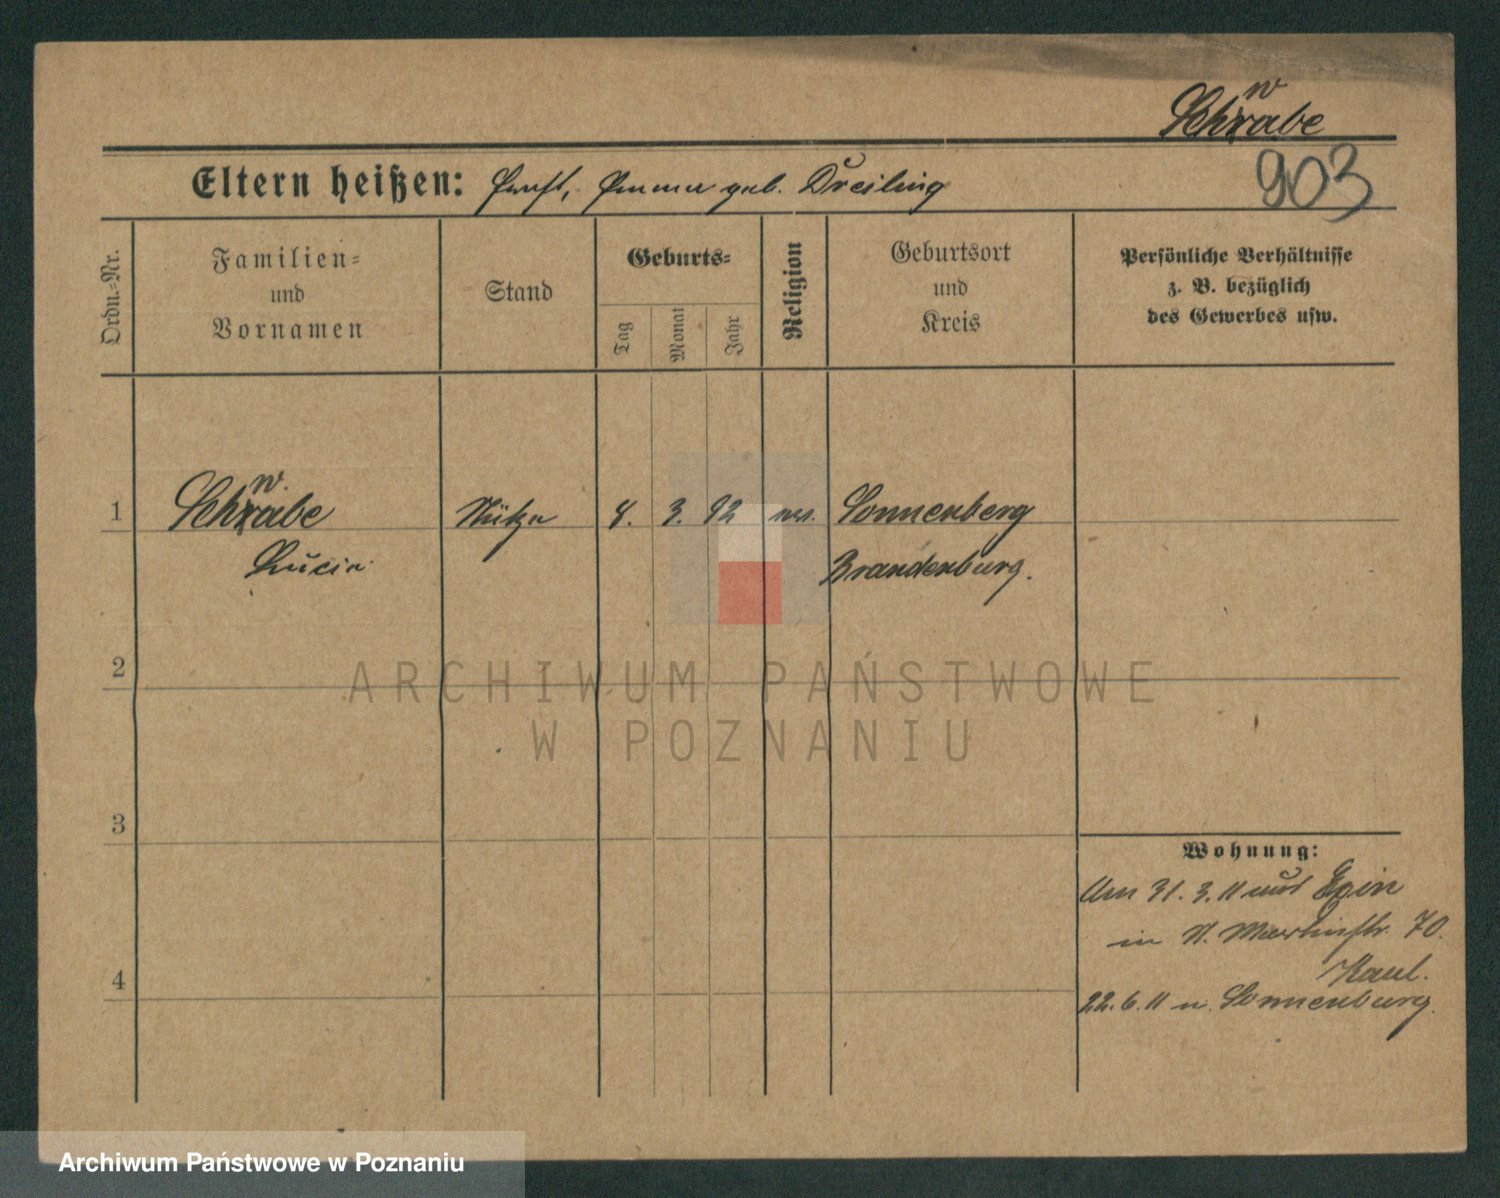 w
Schrabe
Eltern heißen: Ernst, Emma geb. Dreiling
903
Ordn.-Nr.
Familien-
und
Vornamen
Stand
Geburts-
Tag
Monat
Jahr
Religion
Geburtsort
und
Kreis
Persönliche Verhältnisse
z. B. bezüglich
des Gewerbes usw.
w.
1 Schrabe Stütze 4. 3. 92 Sonnenberg
Lucia Brandenburg.
2
3
Wohnung:
Am 31. 3. 11 aus Exin
in St. Martinstr. 70.
4
22. 6. 11 n. Sonnenburg.
ARCHIWUM PAŃSTWOWE
W POZNANIU
Archiwum Państwowe w Poznaniu